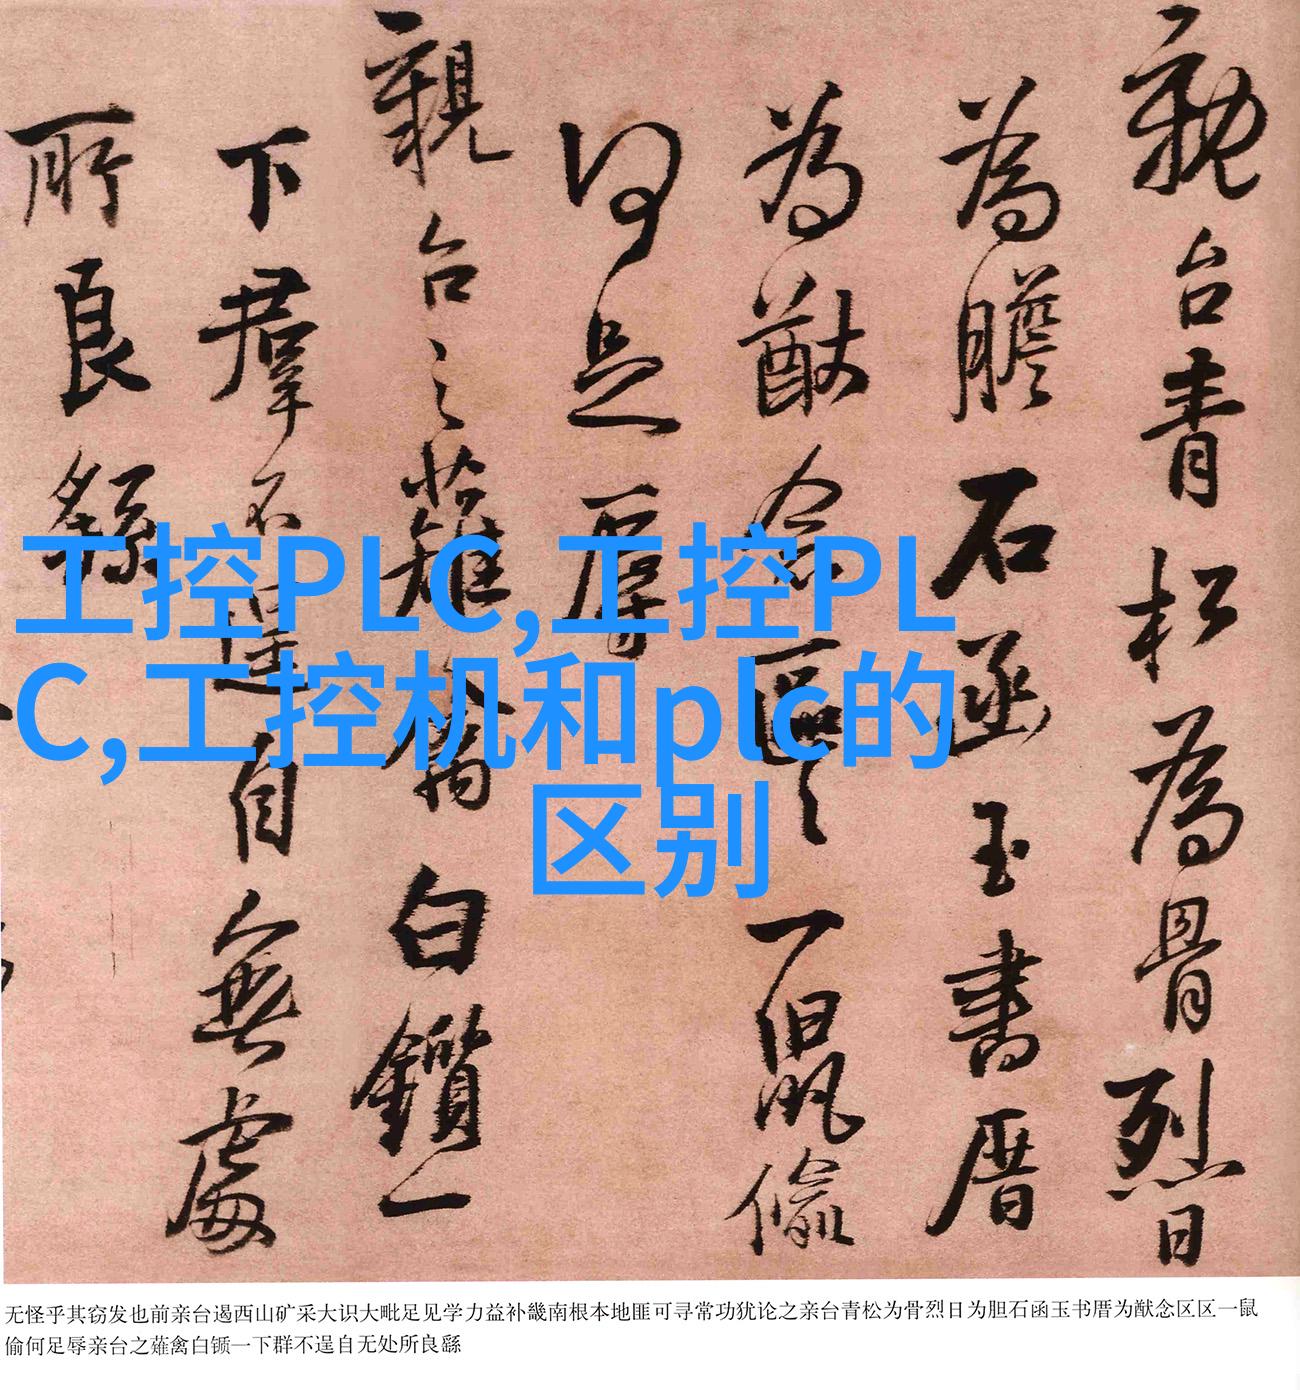 親台青松為骨烈日
為膽石函玉書厝
為猷念區〻一鼠偷
何足辱
親台之薙禽白鑕一
下羣不逞自無處
所良繇
工控PLC,工控PL
C,工控机和plc的
区别
无怪乎其窃发也前亲台遏西山矿采大识大毗足见学力益补畿南根本地匪可寻常功犹论之亲台青松为骨烈日为胆石函玉书厝为猷念区区一鼠
偷何足辱亲台之薙禽白锧一下群不逞自无处所良繇